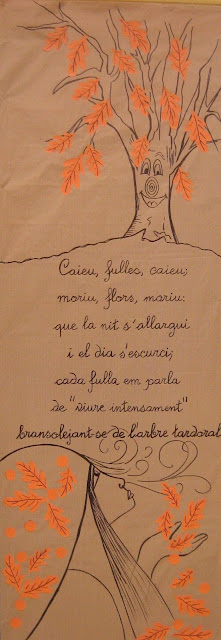 Caieu, fulles, caieu;
moriu, flors, moriu:
que la nit s'allargui
i el dia s'escurci;
cada fulla em parla
de "viure intensament"
bransolejant-se de l'arbre tardoral